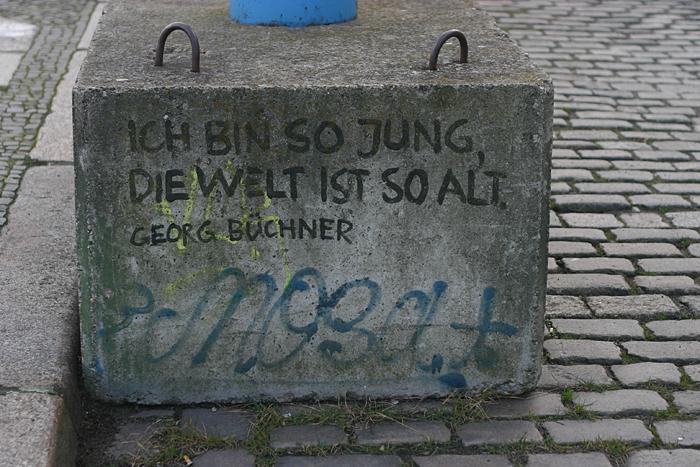 ICH BIN SO JUNG,
DIE WELT IST SO ALT.
GEORG BÜCHNER